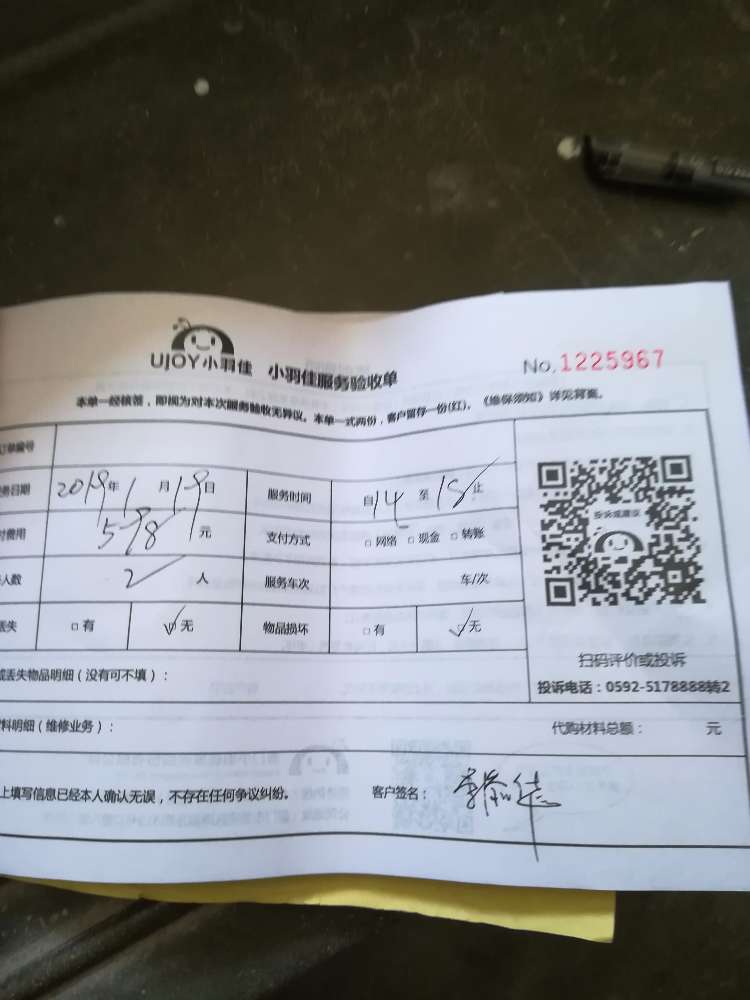 UJOY小羽佳 小羽佳服务验收单 No.1225967
本单一经核签，即视为对本次服务验收无异议。本单一式两份，客户留存一份(红)。《维保须知》详见背面。
订单编号
务日期 2019年 1月 19日 服务时间 自14至18止
付费用 578元 支付方式 □网络 □现金 □转账
人数 2人 服务车次 车/次
丢失 □有 ☑无 物品损坏 □有 ☑无
投诉或建议
扫码评价或投诉
投诉电话：0592-5178888转2
或丢失物品明细（没有可不填）：
料明细（维修业务）： 代购材料总额： 元
上填写信息已经本人确认无误，不存在任何争议纠纷。 客户签名：